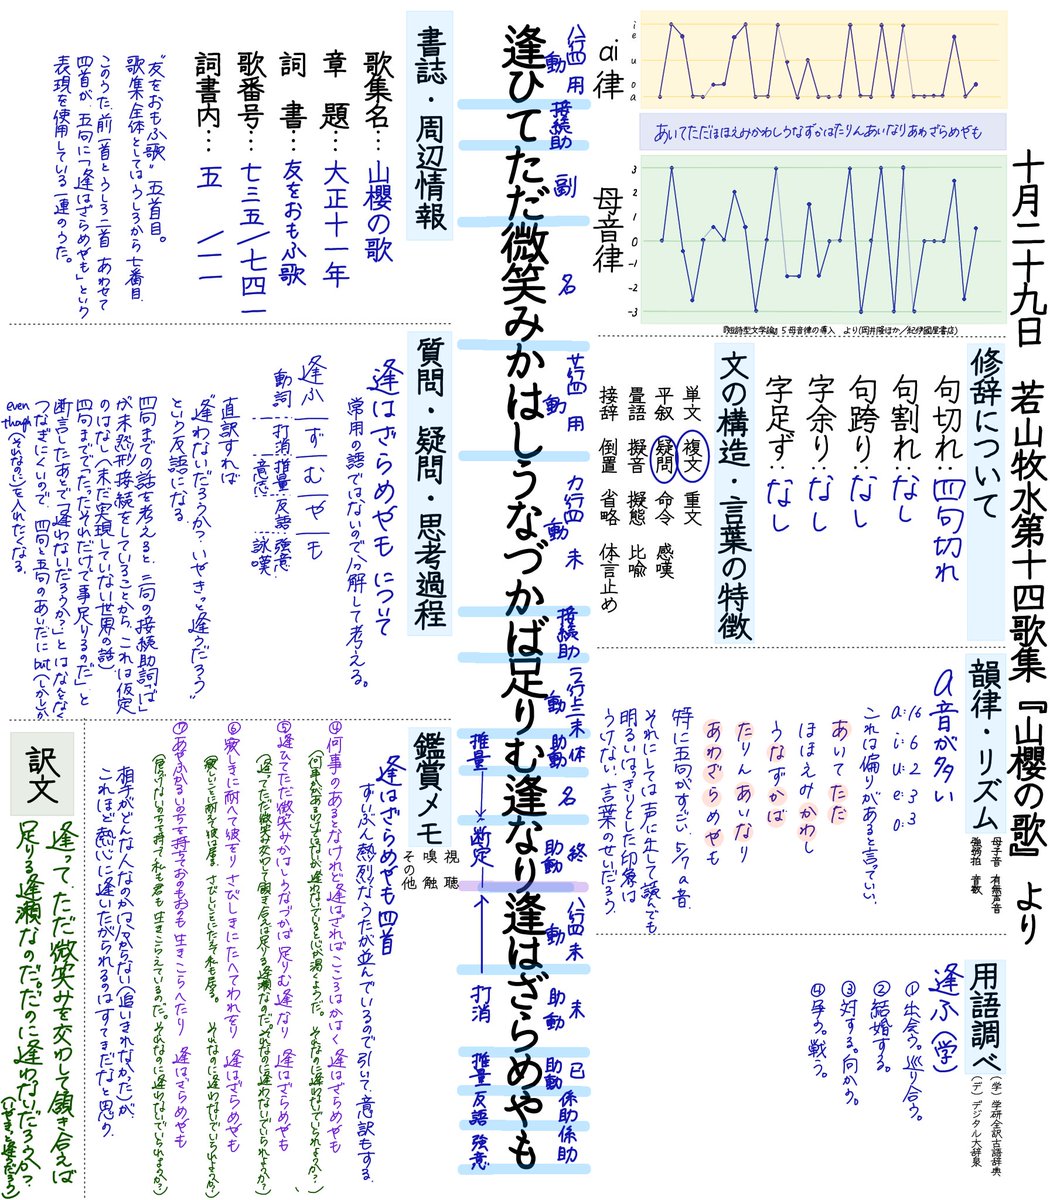 十月二十九日　若山牧水第十四歌集『山櫻の歌』より
ai律
i
e
u
o
a
あいてただほほえみかわしうなずかばたりんあいなりあわざらめやも
母音律
3
2
1
0
-1
-2
-3
『短詩型文学論』5 母音律の導入　より(岡井隆ほか/紀伊國屋書店)
修辞について
句切れ：四句切れ
句割れ：なし
句跨り：なし
字余り：なし
字足ず：なし
文の構造・言葉の特徴
単文　複文　重文
平叙　疑問　命令　感嘆
畳語　擬音　擬態　比喩
接辞　倒置　省略　体言止め
韻律・リズム
母子音　有無声音
強弱拍　音数
a音が多い
a：16
i：6
u：2
e：3
o：3
これは偏りがあると言っていい。
あいてただ
ほほえみかわし
うなずかば
たりんあいなり
あわざらめやも
特に五句がすごい。5/7a音。
それにしては声に出して読んでも
明るいはっきりとした印象は
うけない。言葉のせいだろう。
用語調べ
(学)学研全訳古語辞典
(デ)デジタル大辞泉
逢ふ(学)
①出会う。巡り合う。
②結婚する。
③対する。向かう。
④争う。戦う。
逢ひてただ微笑みかはしうなづかば足りむ逢なり逢はざらめやも
ハ行四　用
動
接続助
副
名
サ行四　用
動
カ行四　未
動
接続助
ラ行上二　未
動
体
助動
名
終
助動
ハ行四　未
動
未
助動
已
助動
係助
係助
推量→断定←
打消
推量
反語
強意
書誌・周辺情報
歌集名：山櫻の歌
章　題：大正十一年
詞　書：友をおもふ歌
歌番号：七三五／七四一
詞書内：五　／一一
“友をおもふ歌” 五首目。
歌集全体としてはうしろから七番目。
このうた、前一首とうしろ二首 あわせて
四首が、五句に「逢はざらめやも」という
表現を使用している一連のうた。
質問・疑問・思考過程
逢はざらめやも について
常用の語ではないので分解して考える。
逢ふ｜ず｜む｜や｜も
動詞　打消　推量　反語　強意
意志　詠嘆
直訳すれば
“逢わないだろうか、いやきっと逢うだろう”
という反語になる
四句までの話を考えると、三句の接続助詞「ば」
が未然形接続をしていることから、これは仮定
のはなし(未だ実現していない世界の話)
四句までで「たったそれだけで事足りるのだ」と
断言したあとで「逢わないだろうか？」とはなんなく
つなぎにくいので、四句と五句のあいだに but(しかし)か
even though(それなのに)を入れたくなる。
鑑賞メモ
視　聴
嗅　触
その他
逢はざらめやも四首
ずいぶん熱烈なうたが並んでいるので引いて、意訳もする。
④何事のあるとなけれど逢はざればこころはかはく逢はざらめやも
⑤逢ひてただ微笑みかはしうなづかば 足りむ逢なり　逢はざらめやも
(逢ってただ微笑み交わして頷き合えば足りる逢瀬なのだ。それなのに逢わないでいられようか？)
⑥寂しきに耐へて彼をり さびしきにたへてわれをり　逢はざらめやも
⑦あやふかるいのちを持ちておのもおのも 生きこらへたり　逢はざらめやも
相手がどんな人なのかは分からない(追いきれなかった)が、
これほど熱心に逢いたがられるのはすてきだなと思う。
訳文
逢って、ただ微笑みを交わして頷き合えば
足りる逢瀬なのだ。だのに逢わないだろうか？
(いやきっと逢うだろう)